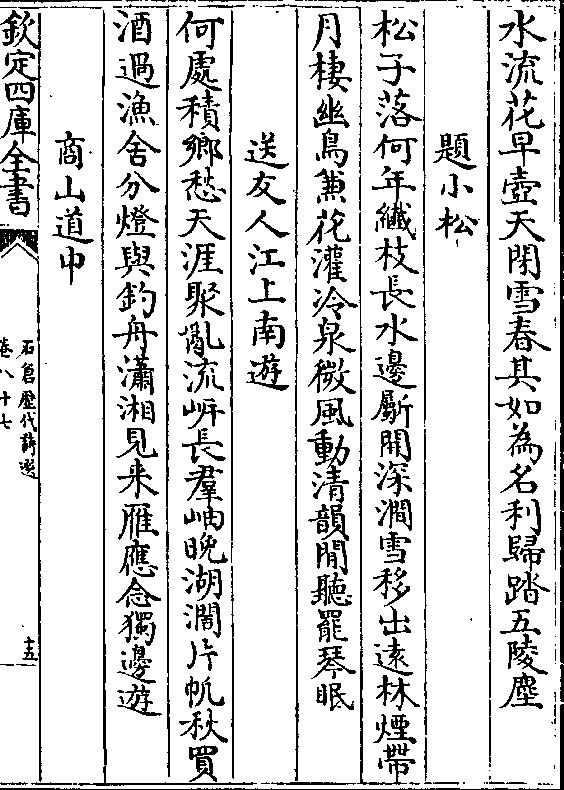 水流花早壺天閉雪春其如為名利歸踏五陵塵
題小松
松子落何年纖枝長水邊斸開深澗雪移出遠林煙帶
月棲幽鳥兼花灌冷泉微風動清韻閒聽罷琴眠
送友人江上南遊
何處積鄉愁天涯聚亂流岍長羣岫晚湖濶片帆秋買
酒過漁舍分燈與釣舟瀟湘見来雁應念獨邊遊
商山道中
欽定四庫全書
石倉歷代詩選
卷八十七
十五